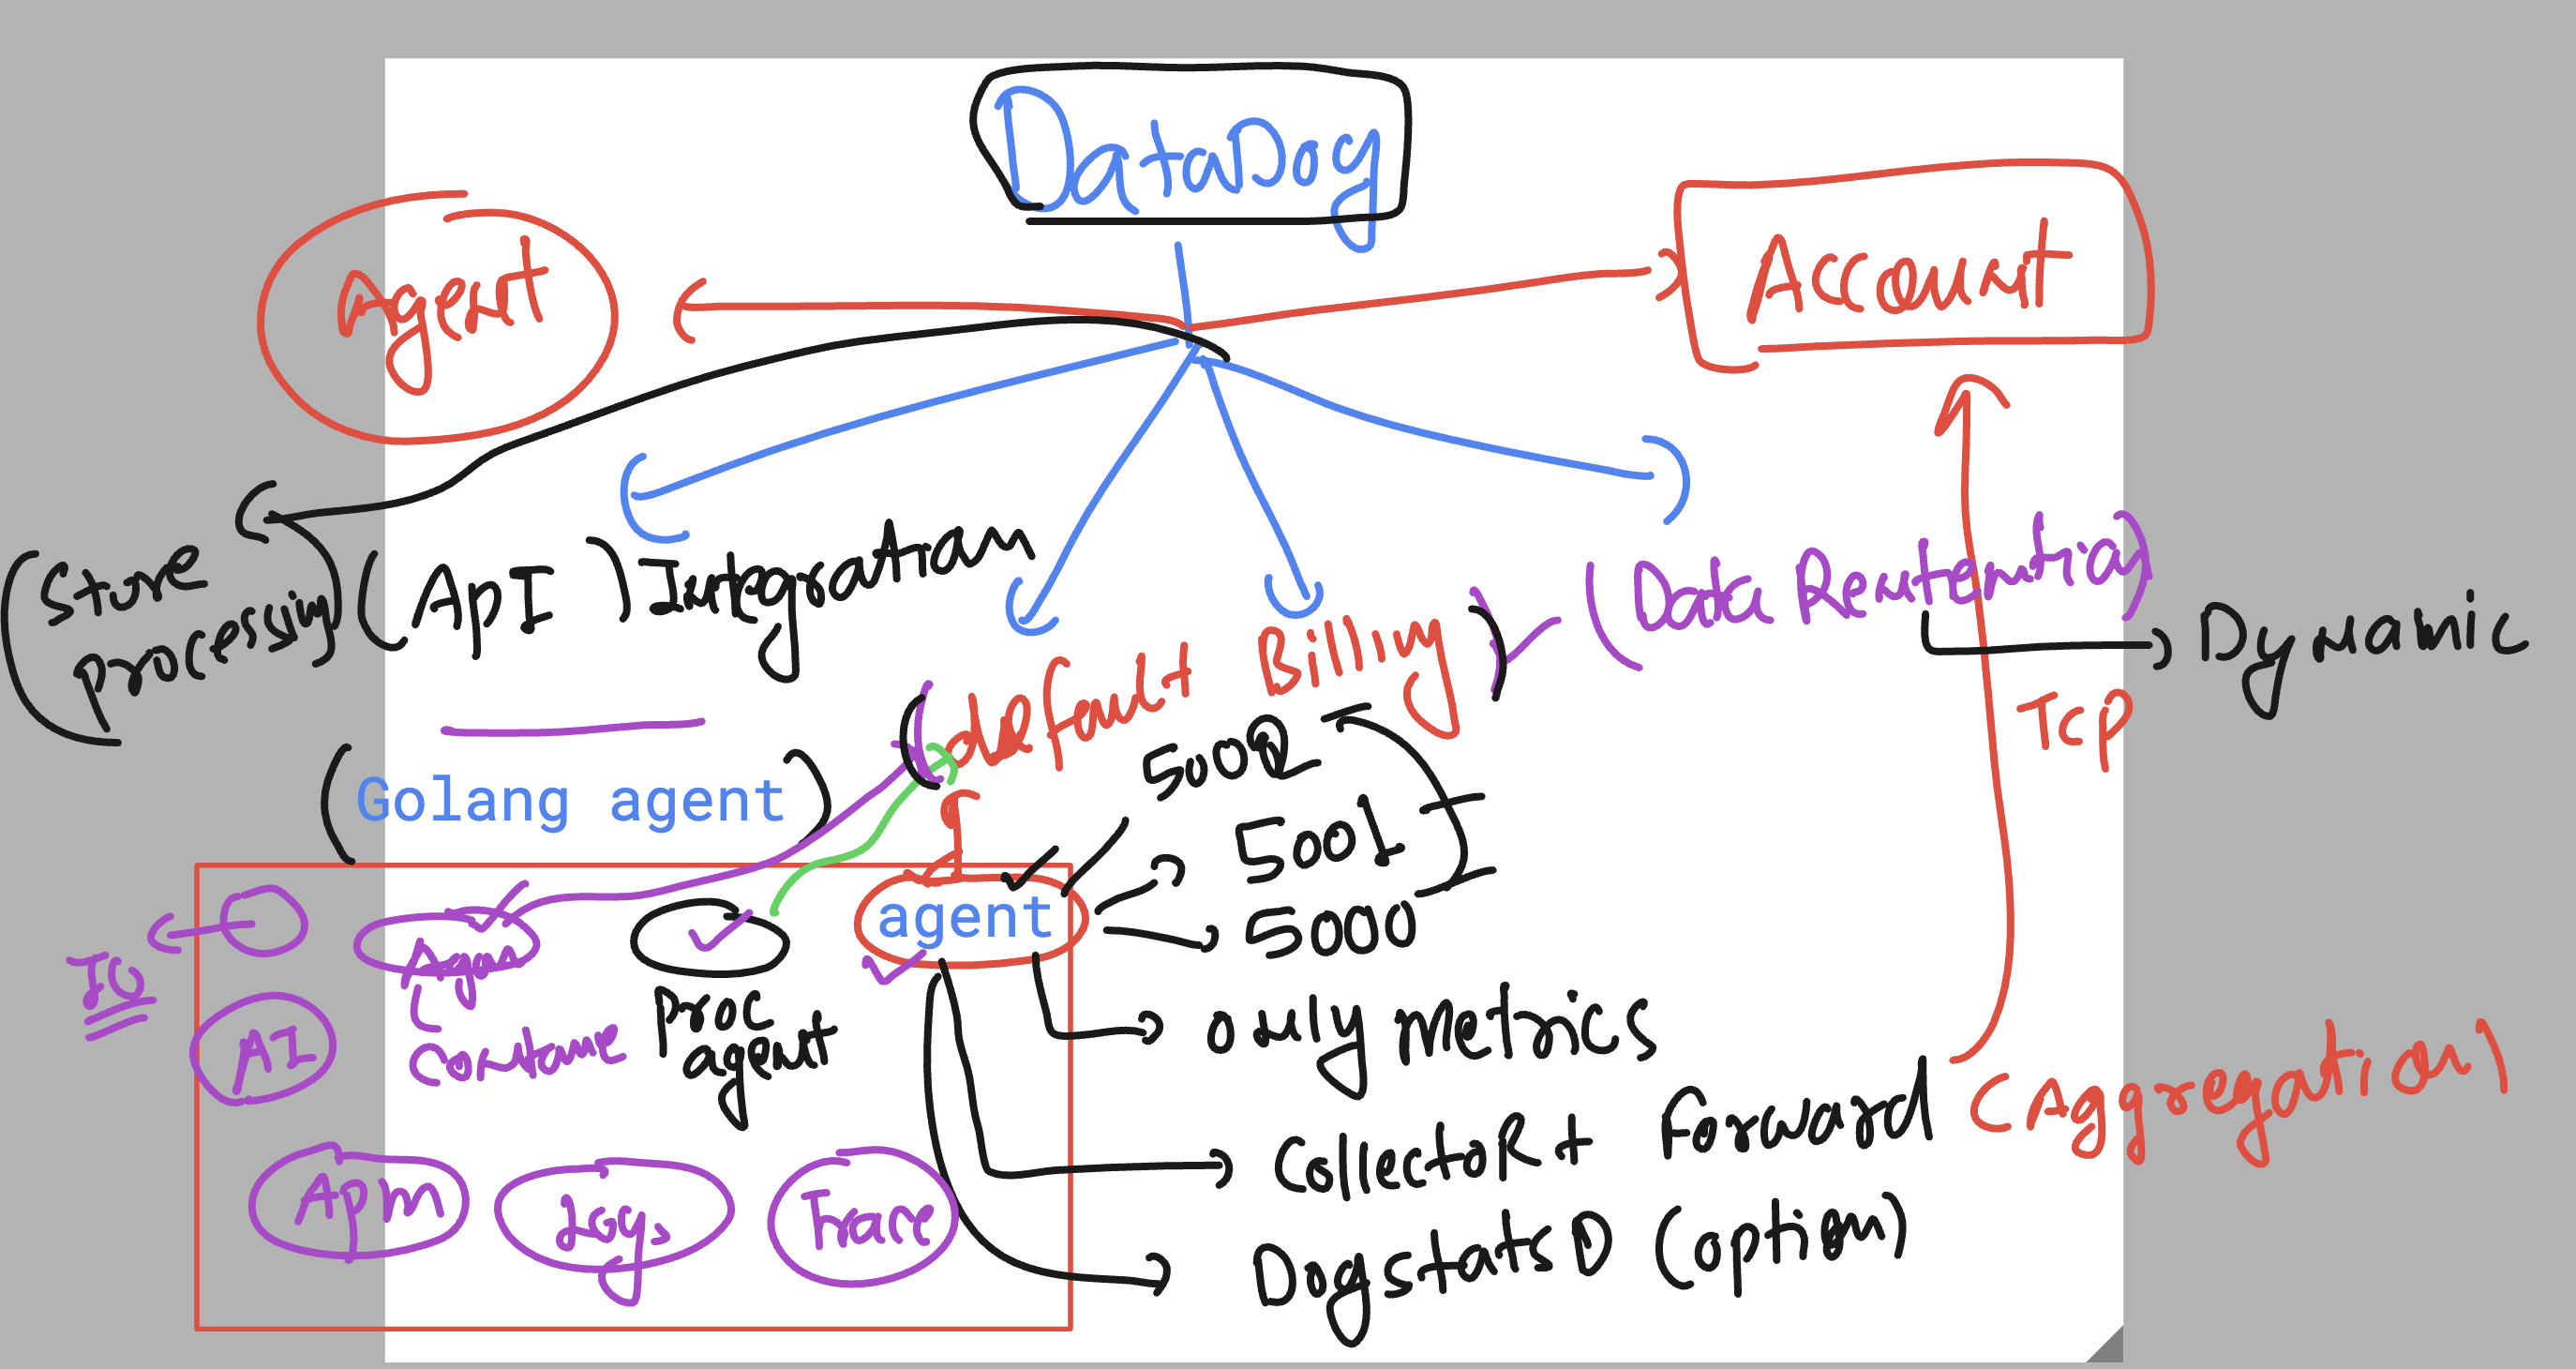 DataDog
Agent
Account
(Store
processing)
(ApI) Integration
(Data Reutention)
Dynamic
(default Billing)
Tcp
(Golang agent)
5002
5001
5000
agent
IO
Agen
Contane
proc
agent
AI
only metrics
CollectoR + Forward
(Aggregation)
Apm
Logs
Trace
DogstatsD (option)